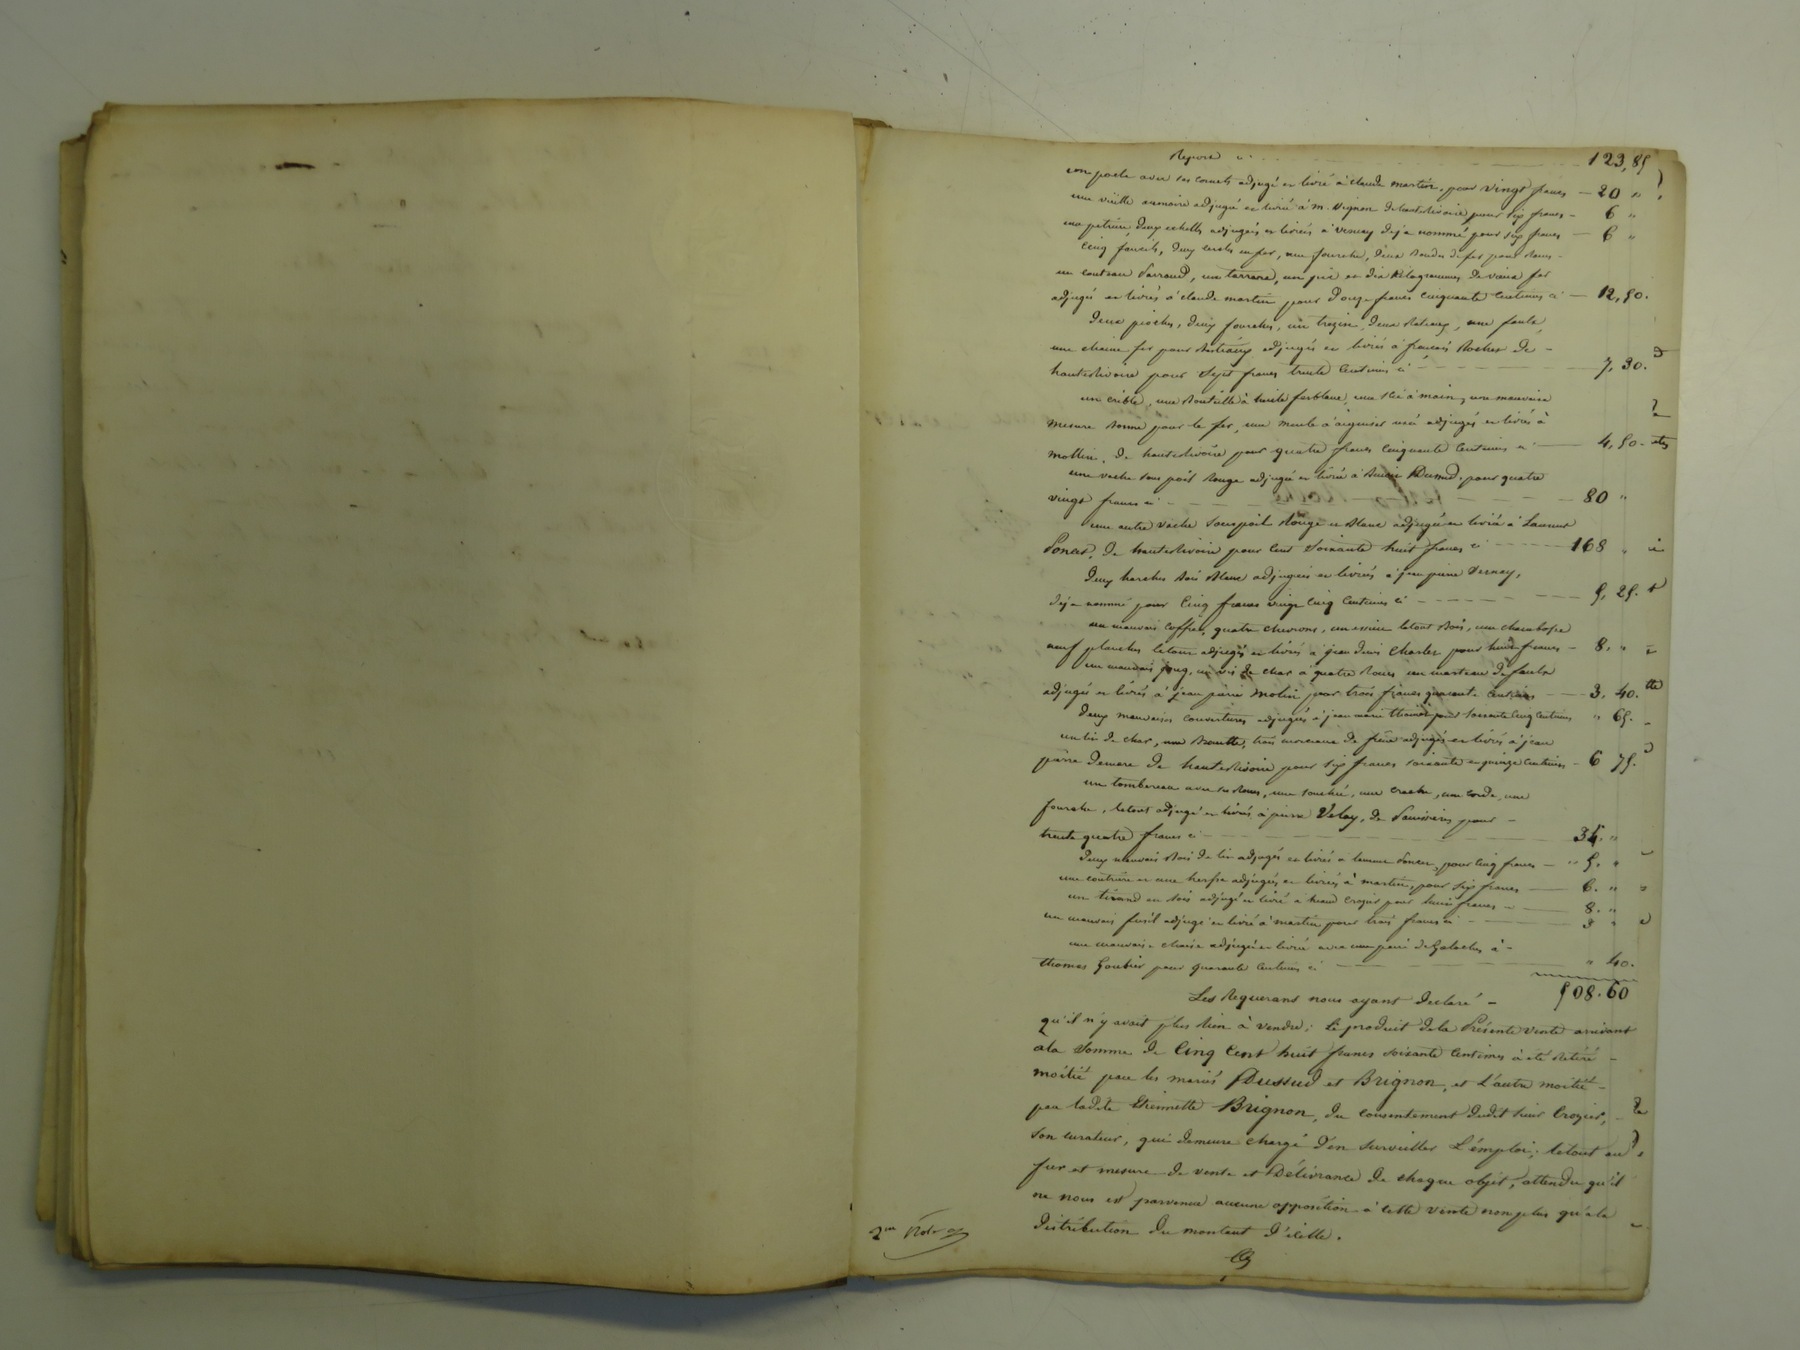 Report ci 123,85
un poele avec ses cornets adjugé et livré à claude martin, pour vingt francs — 20 "
une vieille armoire adjugée et livrée à m. Vignon de hauterivoire pour six francs — 6 "
une petrière, deux echelles adjugées et livrées à Vernay deja nommé pour six francs — 6 "
Cinq faucils, deux cercles en fer, une fourche, deux bandes de fer pour roues
un couteau Sarraud, un tarrare, un pic et dix kilogrammes de vieux fer
adjugés et livrés à claude martin pour Douze francs cinquante centimes ci — 12,50.
deux pioches, deux fourches, un trezin, deux Rateaux, une faulx,
une chaine fer pour bestiaux adjugés et livrés à francois Rochex de
hauterivoire pour sept francs trente centimes ci 7, 30.
un crible, une Bouteille à huile ferblanc, une scie à main, une mauvaise
mesure bonne pour le fer, une meule à aiguiser usée adjugés et livrés à
mollin, de hauterivoire pour quatre francs cinquante centimes ci 4, 50.
une vache sous poil Rouge adjugée et livrée à pour quatre
vingt francs ci 80 "
une autre vache sous poil Rouge et Blanc adjugée et livrée à Laurent
Poncet, de hauterivoire pour cent soixante huit francs ci 168 "
deux harches bois Blanc adjugées et livrées à jean pierre Vernay,
deja nommé pour cinq francs vingt cinq centimes ci 5, 25.
un mauvais coffre, quatre chevrons, un essieu letout bois, une
neuf planches letout adjugés et livrés à jean denis Charles pour huit francs — 8. "
un mauvais joug, un vis de char à quatre Roues un marteau de faulx
adjugés et livrés à jean pierre molin pour trois francs quarante centimes — 3. 40.
deux mauvaises couvertures adjugées à jean marie pour soixante cinq centimes " 65.
un lit de char, une Brouette, trois morceaux de frêne adjugés et livrés à jean
pierre de hauterivoire pour six francs soixante et quinze centimes — 6 75.
un tombereau avec ses Roues, une une creche, une corde, une
fourche, letout adjugé et livré à pierre Velay, de pour
trente quatre francs ci 34. "
Deux mauvais Bois de lit adjugés et livrés à laurent Poncet, pour cinq francs — " 5. "
une et une herse adjugées et livrées à martin, pour six francs — 6. "
un en bois adjugé et livré à pour huit francs — 8. "
un mauvais fusil adjugé et livré à martin pour trois francs ci 3 "
une mauvaise chaise adjugée et livrée avec une paire de Galoches à
thomas Goubier pour quarante centimes ci " 40.
508.60
Les Requerans nous ayant declaré
qu'il n'y avait plus Rien à vendre; le produit dela Présente vente arrivant
ala somme de Cinq Cent huit francs soixante centimes à été Retiré
moitié par les mariés Dussud et Brignon, et L'autre moitié
par ladite Etiennette Brignon, du consentement dudit sieur Crozier,
son curateur, qui demeure chargé d'en surveiller L'émploi; letout au
fur et mesure de vente et Délivrance de chaque objet, attendu qu'il
ne nous est parvenue aucune opposition à cette vente non plus qu'ala
distribution du montant d'icelle.
2me Role